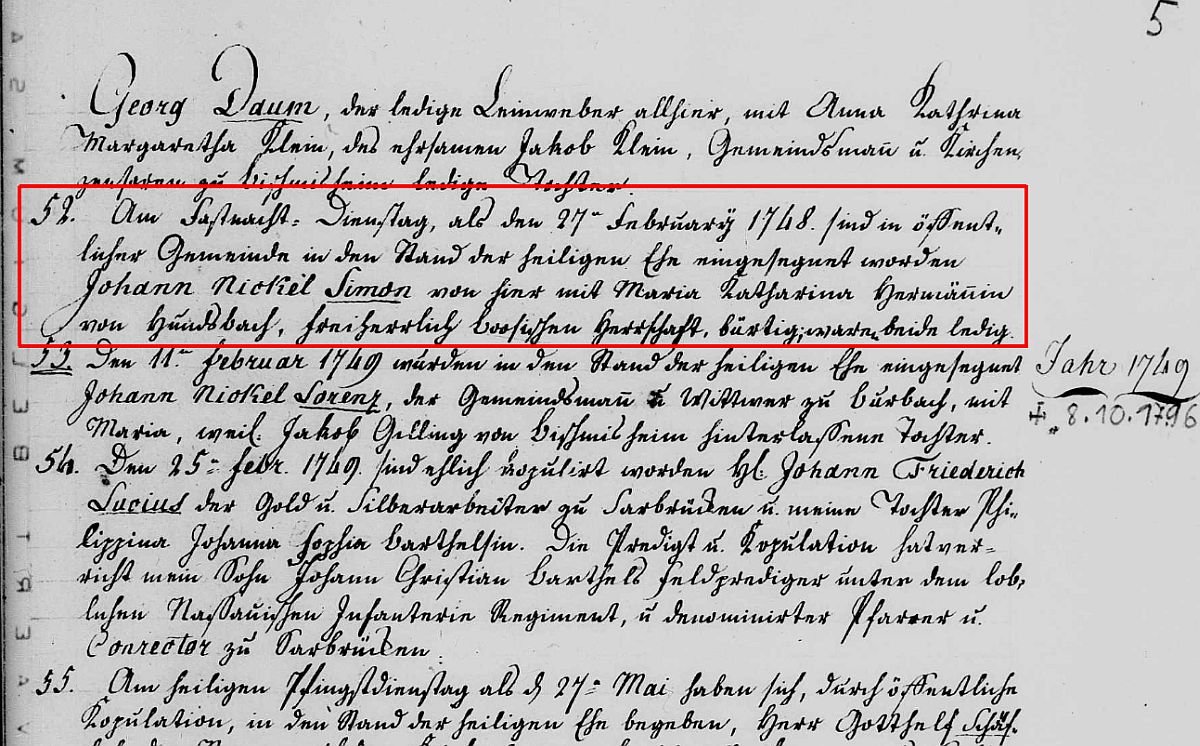 5
Georg Daum, der ledige Leinweber allhier, mit Anna Kathrina
Margaretha Klein, des ehrsamen Jakob Klein, Gemeindsmañ u. Kirchen,
zensoren zu Bischmisheim ledige Tochter.
52. Am Fastnacht= Dienstag, als den 27ten Februarÿ 1748. sind in öffent=
licher Gemeinde in den Stand der heiligen Ehe eingesegnet worden
Johann Nickel Simon von hier mit Maria Katharina Hermäñin
von Hundsbach, freiherrlich boosischen Herrschaft, bürtig; waren beide ledig.
53. Den 11ten Februar 1749 wurden in den Stand der heiligen Ehe eingesegnet
Jahr 1749
Johann Nickel Lorenz, der Gemeindsmañ u Wittwer zu Burbach, mit
✝ 8.10.1796
Maria, weil. Jakob Gilling von Bischmisheim hinterlassene Tochter.
54. Den 25ten Febr. 1749. sind ehlich kopulirt worden H. Johann Friederich
Lucius der Gold u. Silberarbeiter zu Sarbrücken u. meine Tochter Phi=
lippina Johanna Sophia Barthelsin. Die Predigt u. Kopulation hat ver=
richt mein Sohn Johann Christian Barthels Feldprediger unter dem lob,
lichen Nassauischen Infanterie Regiment, u denominirter Pfarrer u.
Conrector zu Sarbrücken.
55. Am heiligen Pfingstdienstag als d 27ten Mai haben sich, durch öffentliche
Kopulation, in den Stand der heiligen Ehe begeben, Herr Gotthelf Schäf=